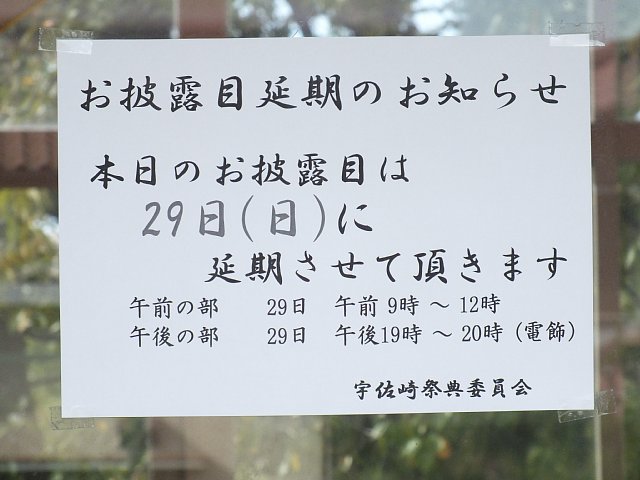 お披露目延期のお知らせ
本日のお披露目は
29日(日)に
延期させて頂きます
午前の部 29日 午前 9時 ～ 12時
午後の部 29日 午後19時 ～ 20時 (電飾)
宇佐崎祭典委員会